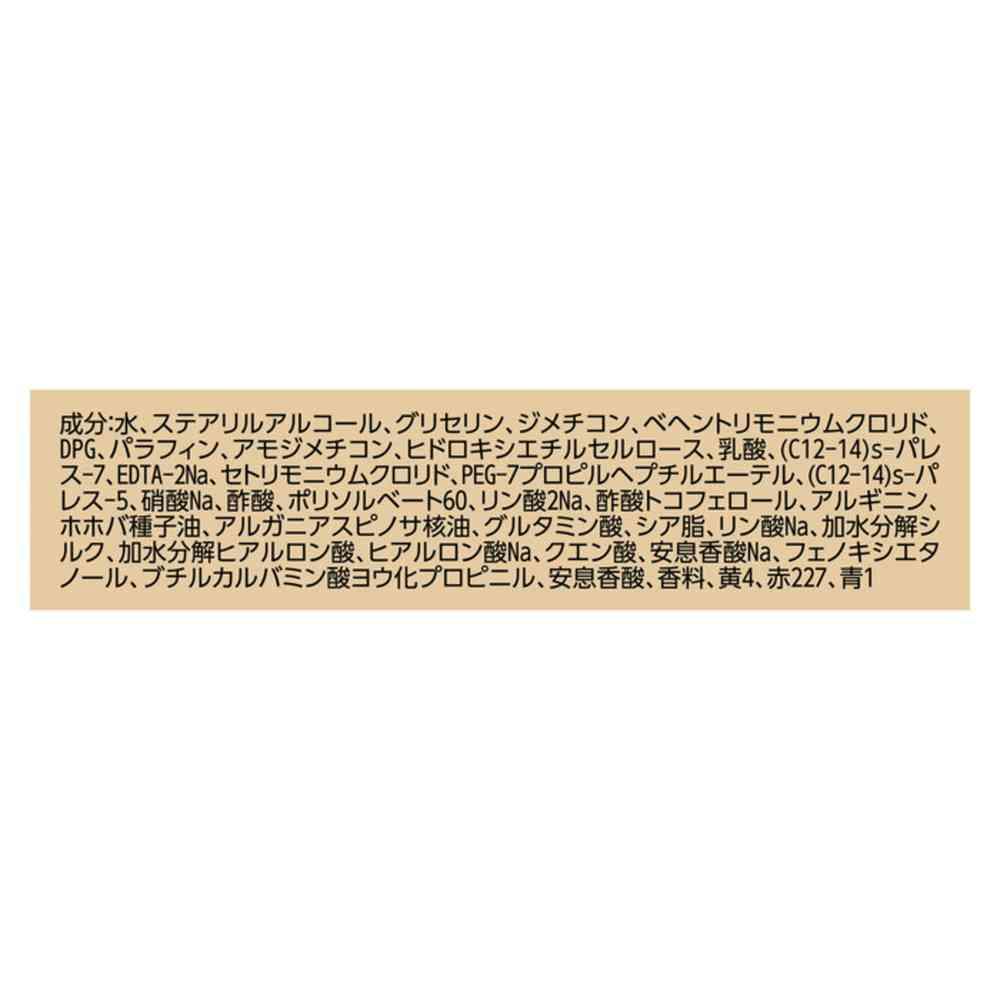 成分:水、ステアリルアルコール、グリセリン、ジメチコン、ベヘントリモニウムクロリド、
DPG、パラフィン、アモジメチコン、ヒドロキシエチルセルロース、乳酸、(C12-14)s-パレ
ス-7、EDTA-2Na、セトリモニウムクロリド、PEG-7プロピルヘプチルエーテル、(C12-14)s-パ
レス-5、硝酸Na、酢酸、ポリソルベート60、リン酸2Na、酢酸トコフェロール、アルギニン、
ホホバ種子油、アルガニアスピノサ核油、グルタミン酸、シア脂、リン酸Na、加水分解シ
ルク、加水分解ヒアルロン酸、ヒアルロン酸Na、クエン酸、安息香酸Na、フェノキシエタ
ノール、ブチルカルバミン酸ヨウ化プロピニル、安息香酸、香料、黄4、赤227、青1